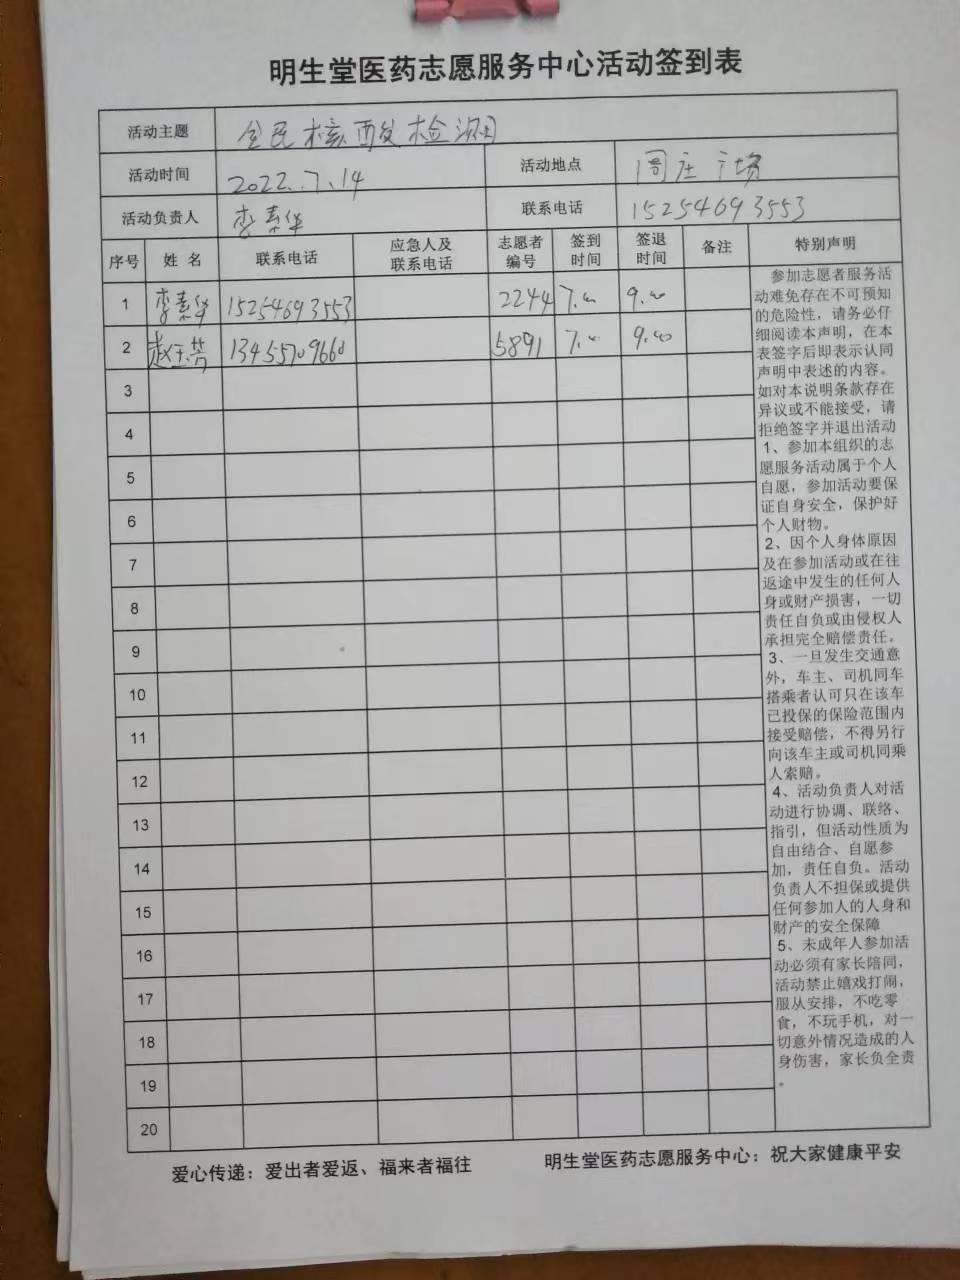 明生堂医药志愿服务中心活动签到表
活动主题 全民核酸检测
活动时间 2022.7.14 活动地点 周庄广场
活动负责人 李素华 联系电话 15254693553
序号 姓名 联系电话 应急人及联系电话 志愿者编号 签到时间 签退时间 备注 特别声明
1 李素华 15254693553 2244 7.00 9.40
2 赵玉芳 13455709660 5891 7.00 9.40
3
4
5
6
7
8
9
10
11
12
13
14
15
16
17
18
19
20
参加志愿者服务活
动难免存在不可预知
的危险性，请务必仔
细阅读本声明，在本
表签字后即表示认同
声明中表述的内容。
如对本说明条款存在
异议或不能接受，请
拒绝签字并退出活动
1、参加本组织的志
愿服务活动属于个人
自愿，参加活动要保
证自身安全，保护好
个人财物。
2、因个人身体原因
及在参加活动或在往
返途中发生的任何人
身或财产损害，一切
责任自负或由侵权人
承担完全赔偿责任。
3、一旦发生交通意
外，车主、司机同车
搭乘者认可只在该车
已投保的保险范围内
接受赔偿，不得另行
向该车主或司机同乘
人索赔。
4、活动负责人对活
动进行协调、联络、
指引，但活动性质为
自由结合、自愿参
加，责任自负。活动
负责人不担保或提供
任何参加人的人身和
财产的安全保障
5、未成年人参加活
动必须有家长陪同，
活动禁止嬉戏打闹，
服从安排，不吃零
食，不玩手机，对一
切意外情况造成的人
身伤害，家长负全责
。
爱心传递：爱出者爱返、福来者福往 明生堂医药志愿服务中心：祝大家健康平安